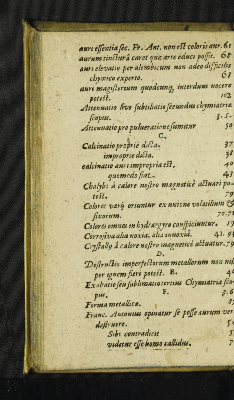 auri essentia sec. Fr. Ant. non est coloris aur. 61
aurum tincturâ caret quæ arte educi possit. 65
auri elevatio per alembicum non adeo difficilis
chymico experto. 63
auri magisterium quodsumq, interdum nocera
potest. 102
Attenuatio sive subtiliatio secundus chymiatriæ
scopus. 3.5.
Attenuatio pro pulveratione sumitur 30
C.
Calcinatio proprie dicta. 37
improprie dicta. 38
calcinatio auri impropria est. 40
quomodo fiat. 43
Chalybs à calore nostro magneticè actuari po-
test. 79
Colores varij oriuntur ex unione volatilium &
fixorum. 70.71
Colores omnes in hydrargyro conspiciuntur. 19
Corrosiva alia noxia, alia innoxia. 43.
Crystallus à calore nostro magneticè actuatur. 79
D.
Destructio imperfectorum metallorum non nisi
per ignem fieri potest.
E.
Exaltatio seu sublimatio tertius Chymiatriæ sco-
pus. 3.6
F.
Forma metallica.
Franc. Antonius opinatur se posse aurum ver-
destruere.
Sibi contradicit
videtur esse homo callidus.